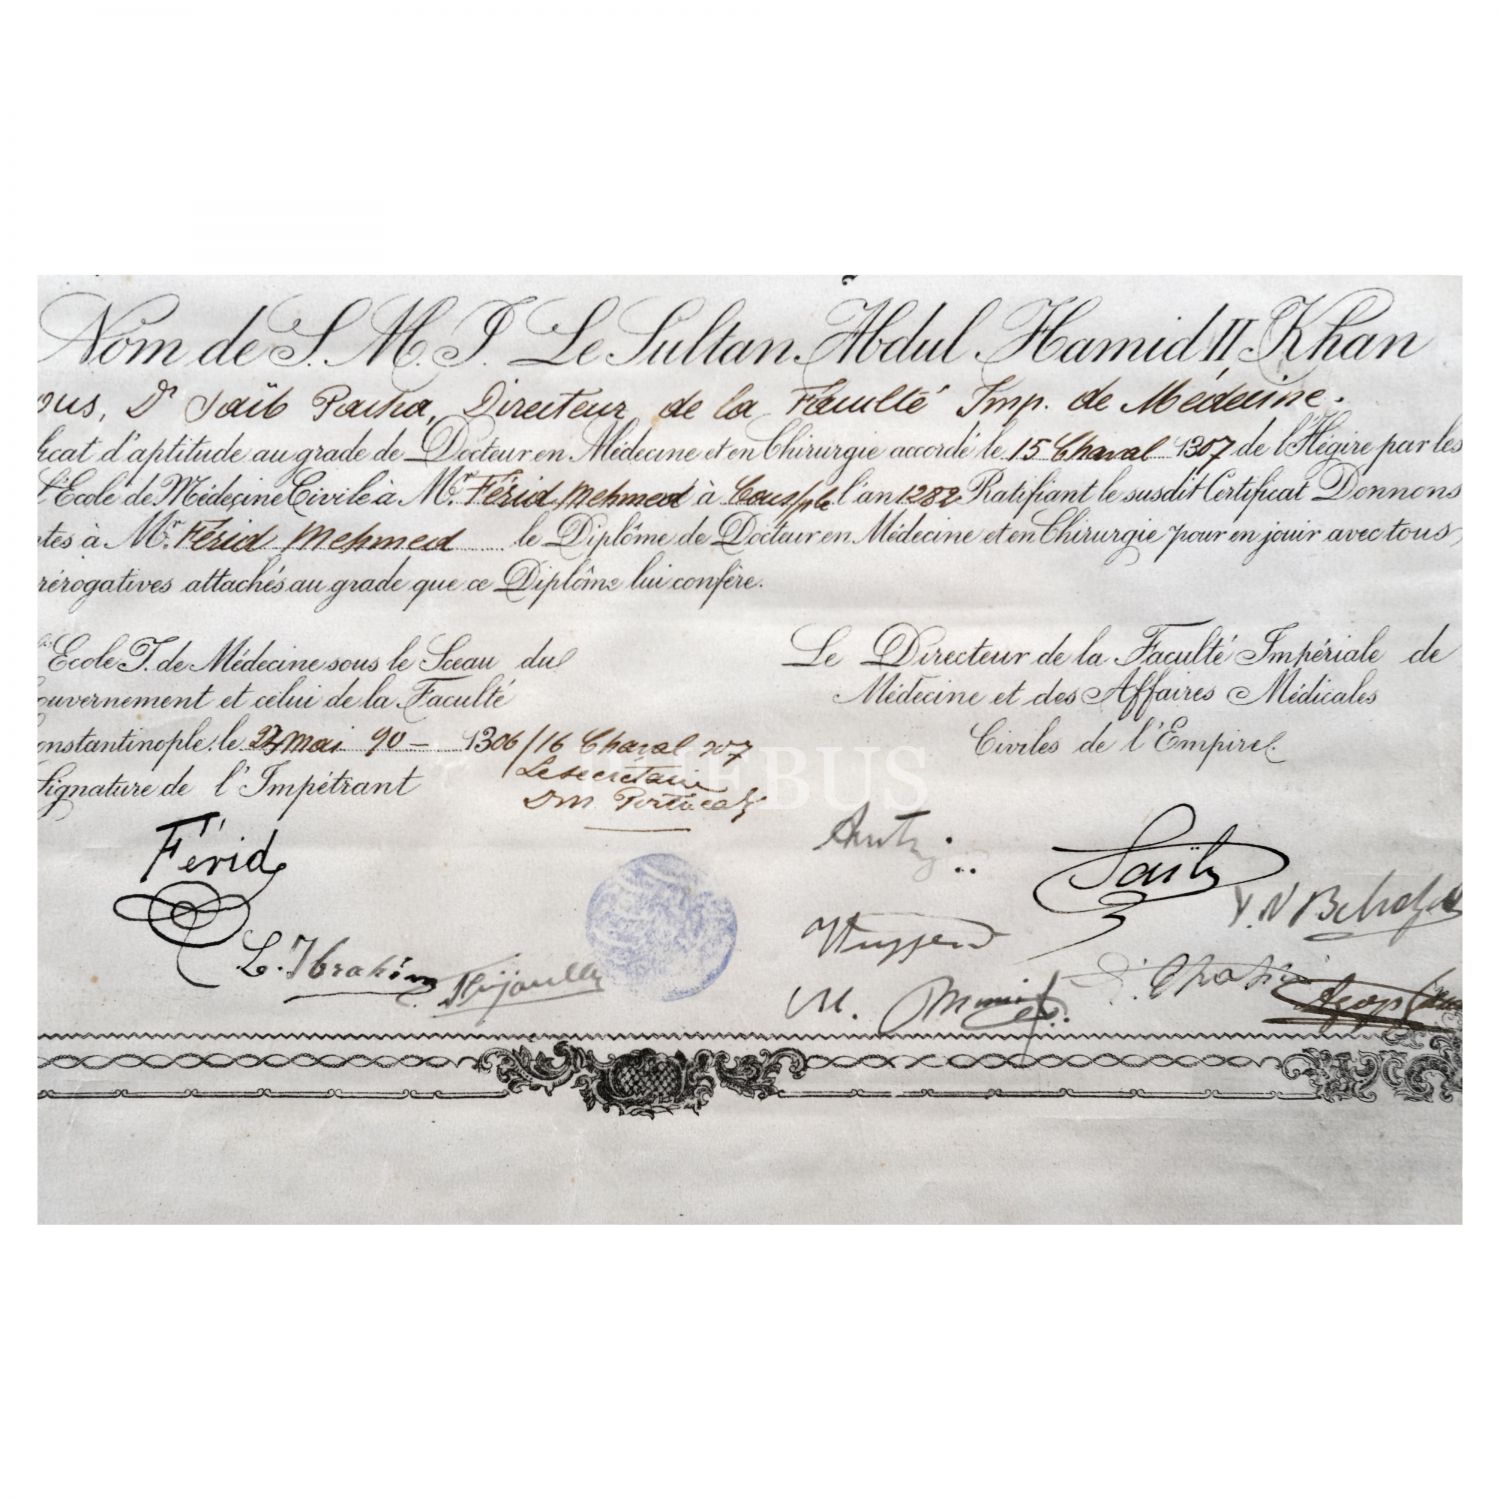 Nom de S. M. I. Le Sultan Abdul Hamid II Khan
ous, Dr Saïb Pacha, Directeur de la Faculté Imp. de Médecine.
ficat d'aptitude au grade de Docteur en Médecine et en Chirurgie accordé le 15 Chaval 1307 de l'Hégire par les
l'Ecole de Médecine Civile à Mr. Férid Mehmed à Consple l'an 1282 Ratifiant le susdit Certificat Donnons
tes à Mr. Férid Mehmed le Diplôme de Docteur en Médecine et en Chirurgie pour en jouir avec tous
rérogatives attachés au grade que ce Diplôme lui confère.
Ecole I. de Médecine sous le Sceau du
ouvernement et celui de la Faculté
onstantinople, le Mai 90 - 1306/16 Chaval 307
Signature de l'Impétrant
Le secrétaire
Le Directeur de la Faculté Impériale de
Médecine et des Affaires Médicales
Civiles de l'Empire
PHEBUS
Férid
Saïb
L. Ibrahim